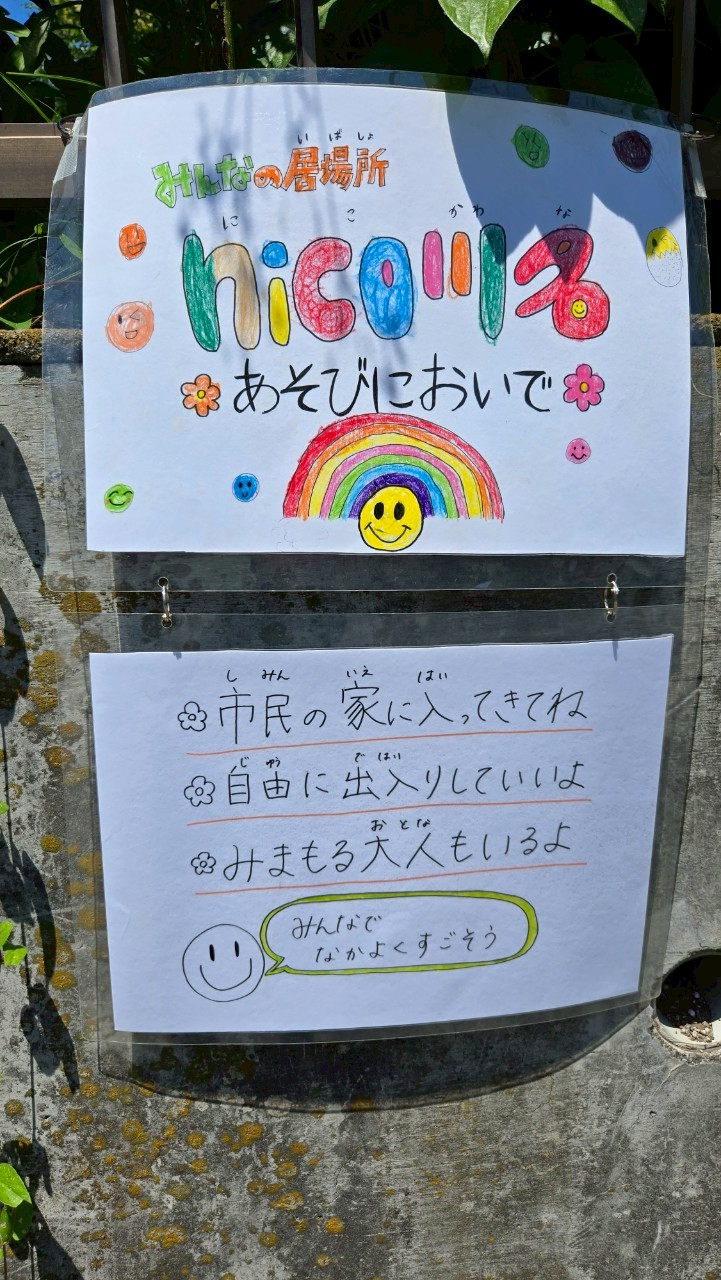 いばしょ
みんなの居場所
に こ かわ な
nico川名
あそびにおいで
しみん いえ はい
市民の家に入ってきてね
じゆう ではい
自由に出入りしていいよ
おとな
みまもる大人もいるよ
みんなで
なかよくすごそう